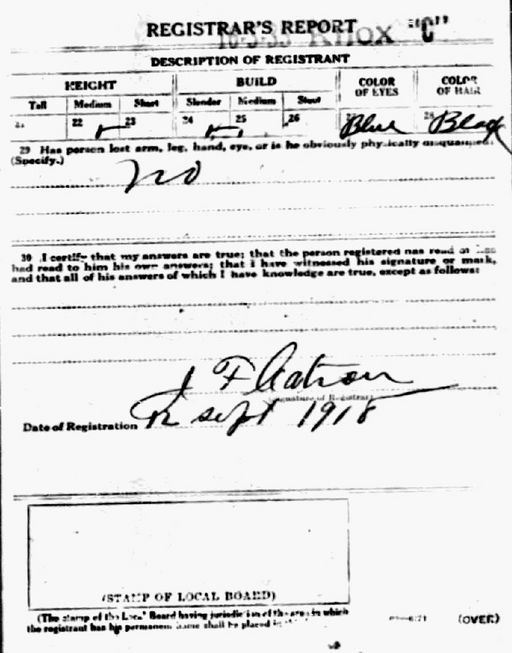 REGISTRAR'S REPORT
Knox "C"
DESCRIPTION OF REGISTRANT
HEIGHT BUILD COLOR OF EYES COLOR OF HAIR
Tall Medium Short Slender Medium Stout
21 22 23 24 25 26 Blue 28 Black
29 Has person lost arm, leg, hand, eye, or is he obviously physically disqualified?
(Specify.)
no
30 I certify that my answers are true; that the person registered has read or has
had read to him his own answers; that I have witnessed his signature or mark,
and that all of his answers of which I have knowledge are true, except as follows:
J F
Signature of Registrar
Date of Registration 12 Sept 1918
(STAMP OF LOCAL BOARD)
(The stamp of the Local Board having jurisdiction of the area in which
the registrant has his permanent home shall be placed in
(OVER)